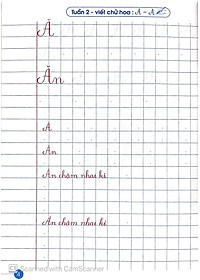 Tuần 2 - viết chữ hoa : Ă - Â
Ă
Ăn
Ă
Ăn
Ăn chậm nhai kĩ
Ăn chậm nhai kĩ
Scanned with CamScanner